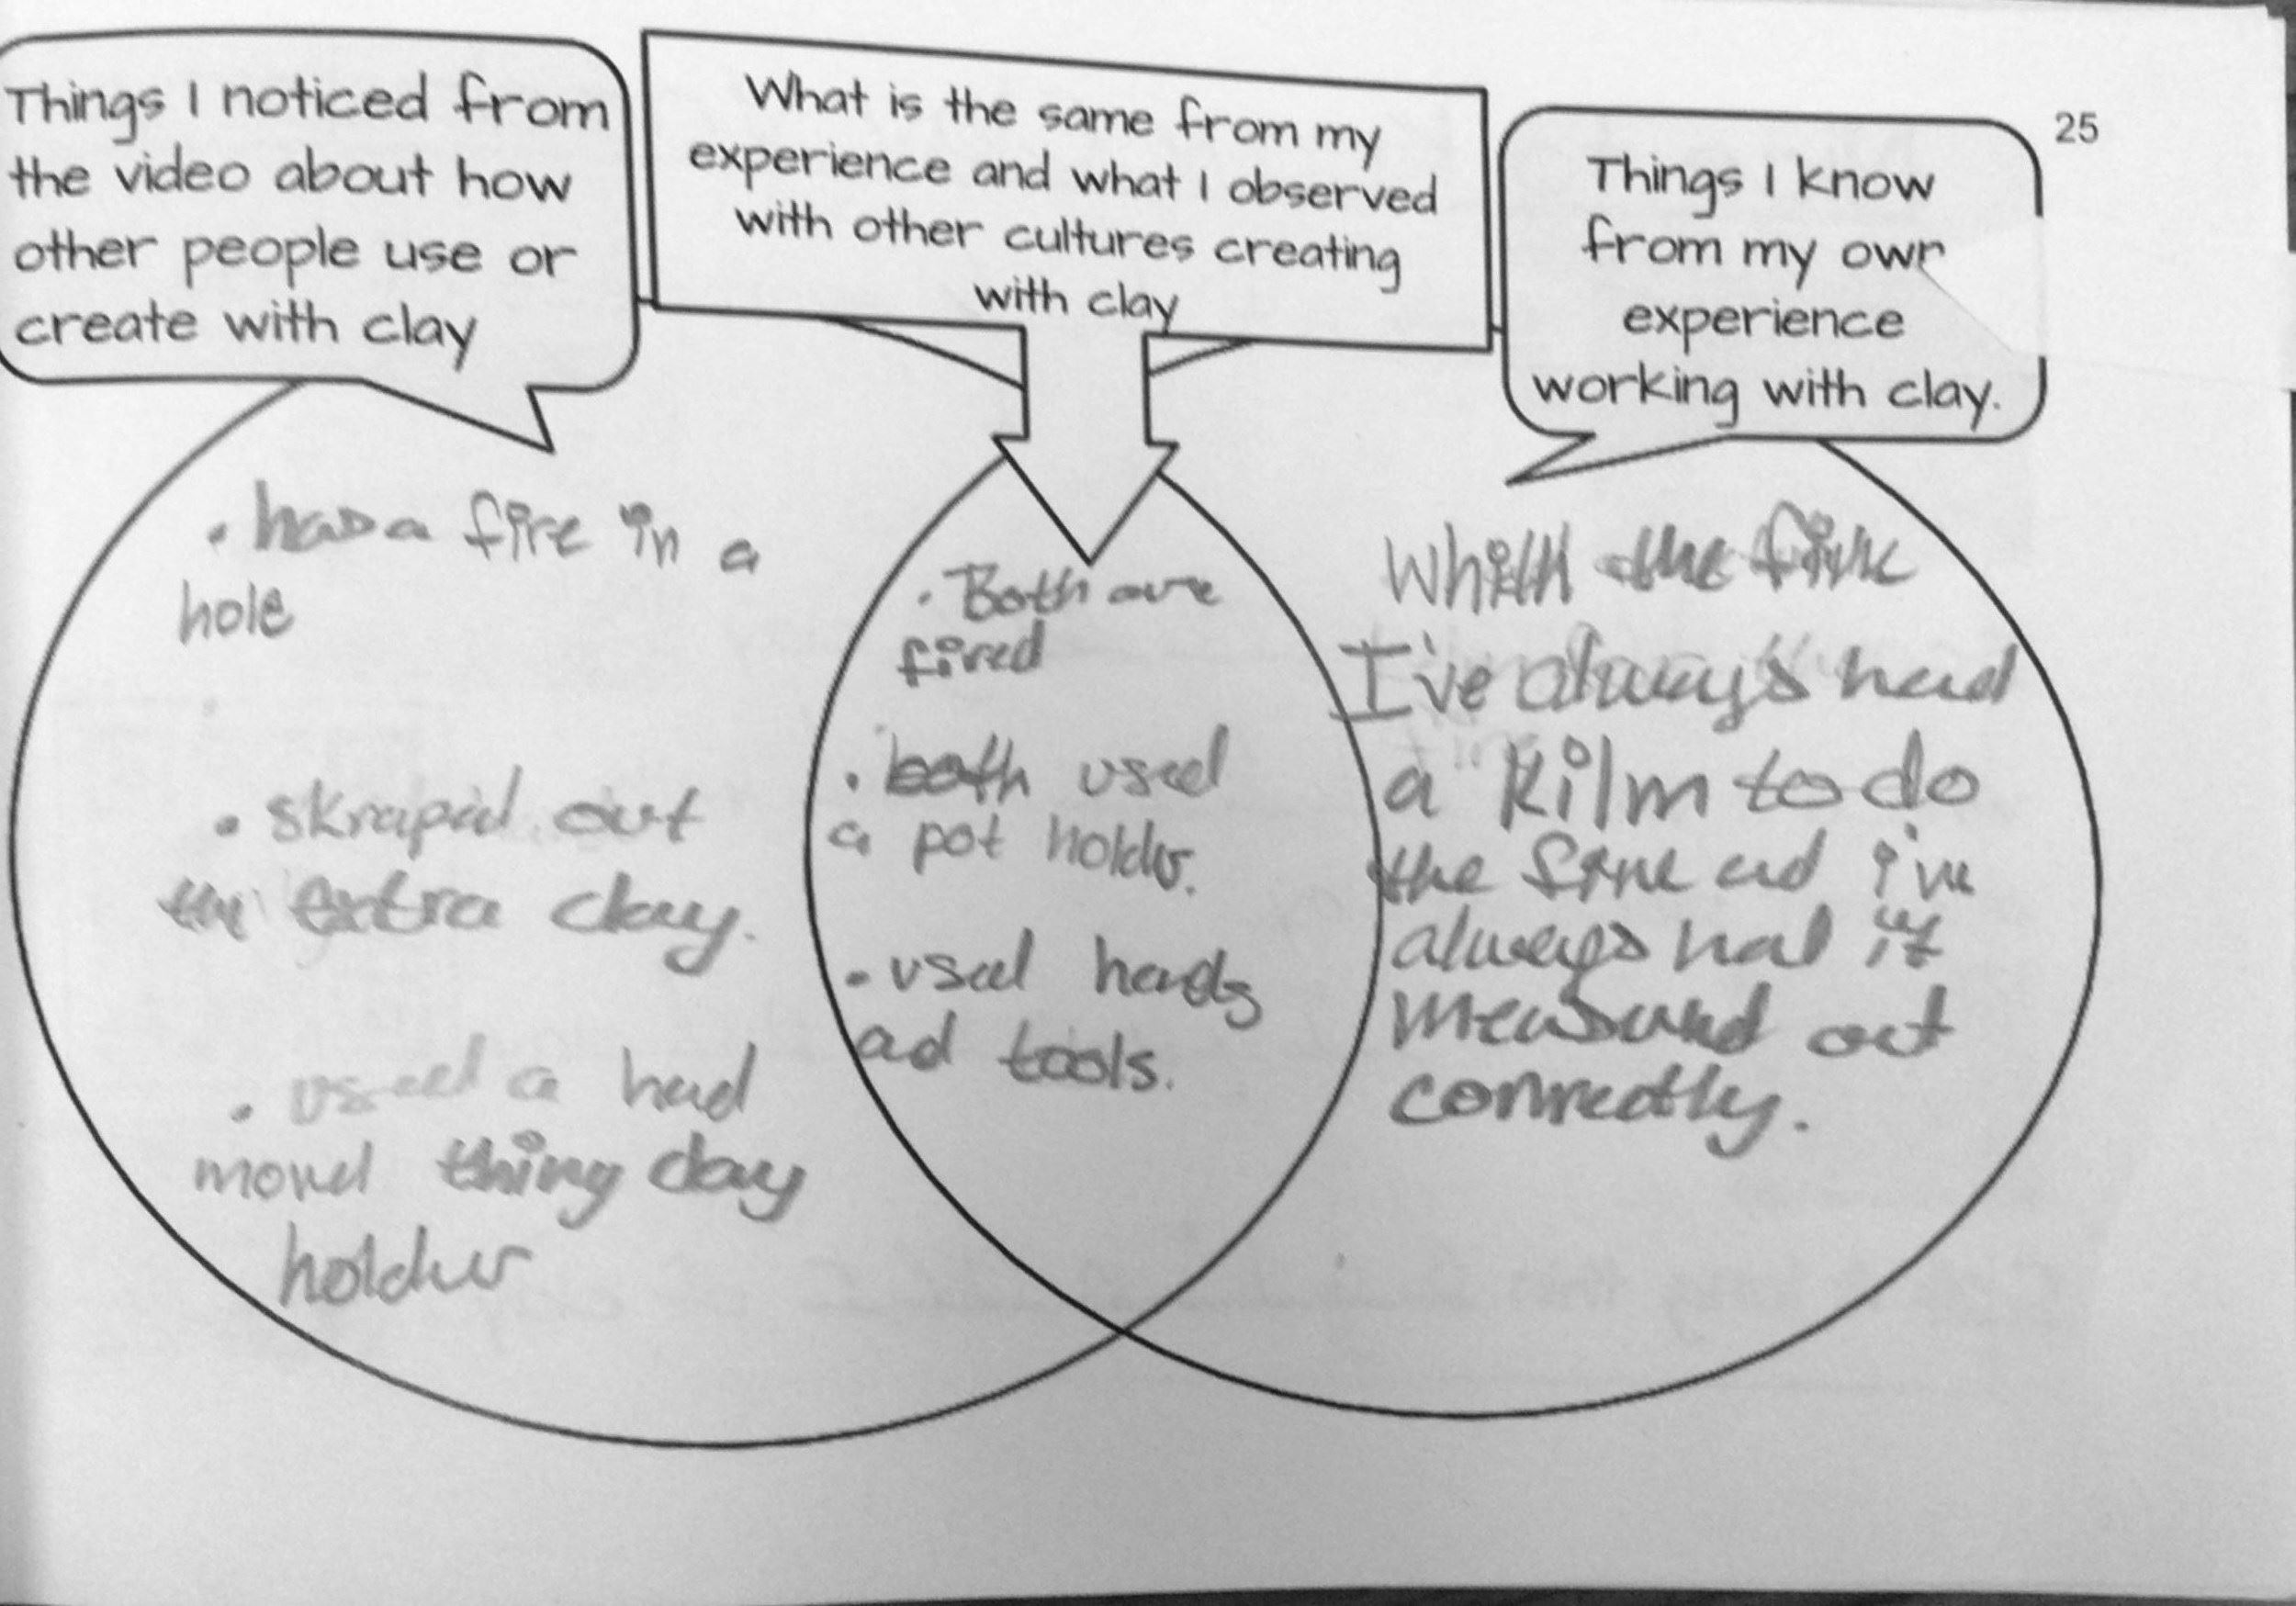 Things I noticed from
the video about how
other people use or
create with clay
What is the same from my
experience and what I observed
with other cultures creating
with clay
25
Things I know
from my own
experience
working with clay.
• has a fire in a
hole
• skrapid out
the extra clay.
• used a had
moved thing clay
holder
• Both are
fired
• both used
a pot holder.
• used hands
ad tools.
the
I've always had
a kilm to do
the ad i've
always had it
measured out
correctly.